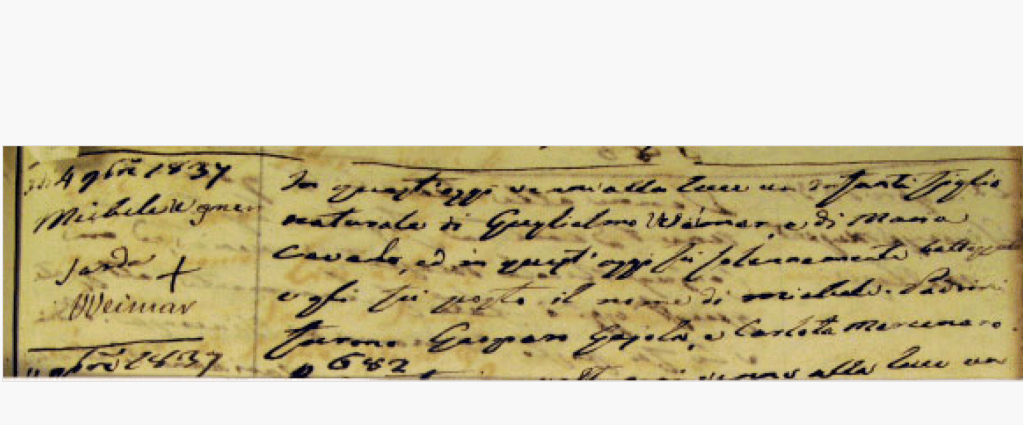 4 9bre 1837
Michele Wegner
Sardo
Weimar
In quest'oggi venne alla luce un Infante figlio
naturale di Guglielmo Weimar, e di Maria
Cavado, ed in quest'oggi fu solennemente battezzato
e gli fu posto il nome di Michele. Padrini
furono Gasparo Gajola, e Carlotta Mercenaro.
9bre 1837
682
alla luce un